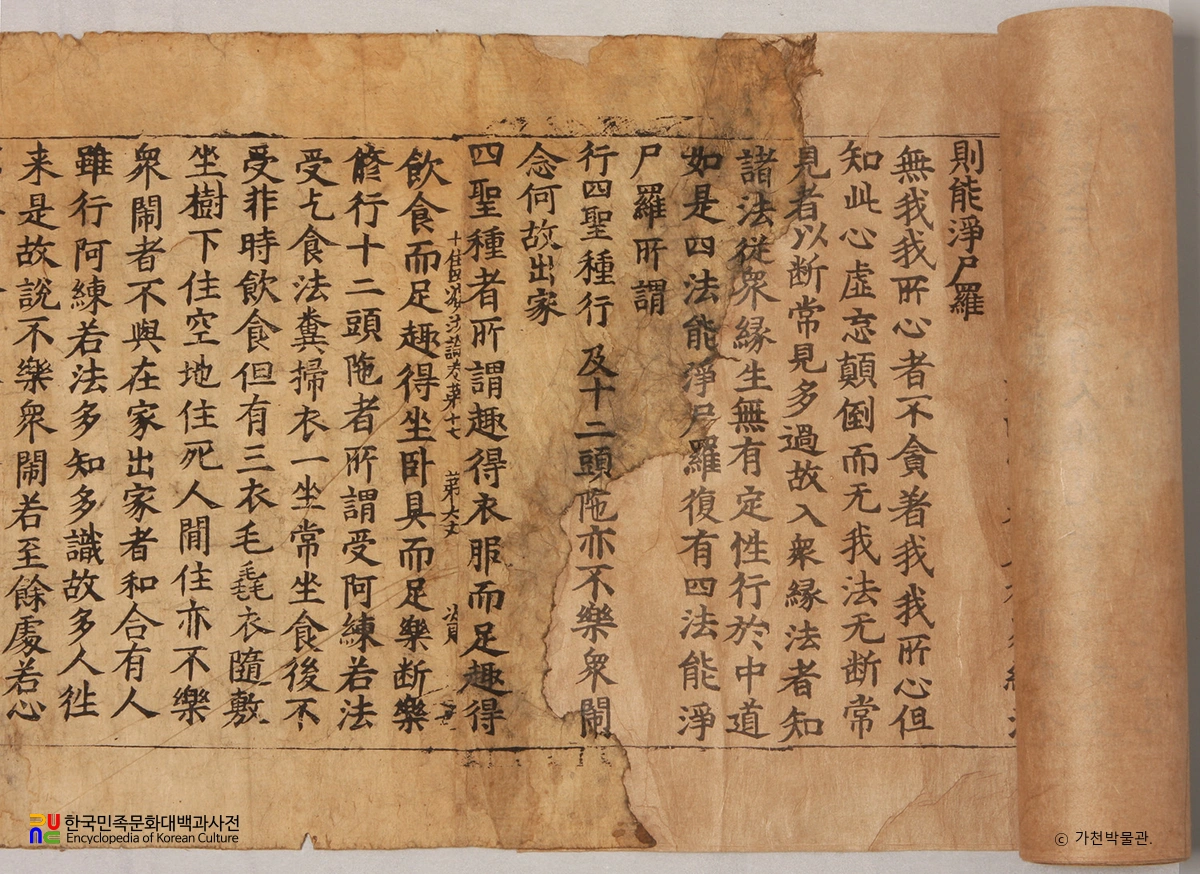 則能淨尸羅
無我我所心者不貪著我我所心但
知此心虛妄顛倒而无我法无断常
見者以断常見多過故入衆緣法者知
諸法從衆緣生無有定性行於中道
如是四法能淨尸羅復有四法能淨
尸羅所謂
行四聖種行 及十二頭陁亦不樂衆閙
念何故出家
十住毗婆沙論卷第十七 第六丈
四聖種者所謂趣得衣服而足趣得
飮食而足趣得坐卧具而足樂断樂
脩行十二頭陁者所謂受阿練若法
受乞食法糞掃衣一坐常坐食後不
受非時飮食但有三衣毛毳衣隨敷
坐樹下住空地住死人間住亦不樂
衆閙者不與在家出家者和合有人
雖行阿練若法多知多識故多人徃
来是故說不樂衆閙若至餘處若心
한국민족문화대백과사전
Encyclopedia of Korean Culture
ⓒ 가천박물관.